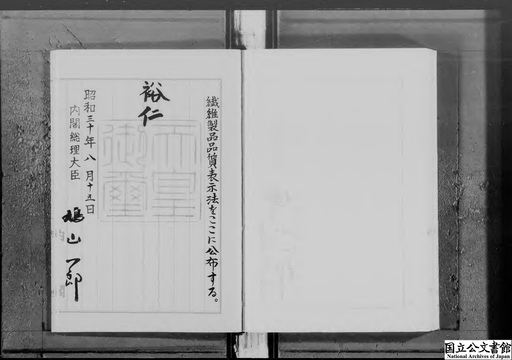 繊維製品品質表示法をここに公布する。
裕仁
天皇
御璽
昭和三十年八月十五日
内閣総理大臣
鳩山一郎
国立公文書館
National Archives of Japan